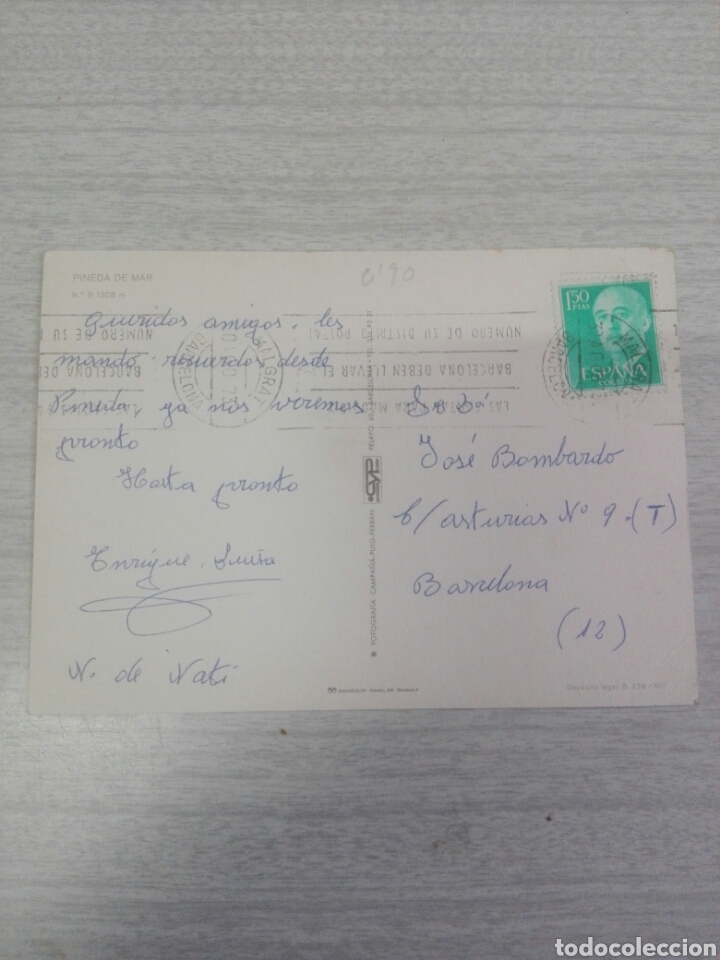 PINEDA DE MAR
N.º 8 1308
0'90
Queridos amigos. les
mando recuerdos desde
Pineda ya nos veremos
pronto
Hasta pronto
Enrique Luisa
N. de Nati
1,50
PTAS
ESPAÑA
MALGRAT
BARCELONA
NUMERO DE SU DISTRITO POSTAL
BARCELONA DEBEN LLEVAR EL
LAS CARTAS PARA
FOTOGRAFIA CAMPAÑA-PUIG-FERRAN
José Bombardo
c/ asturias Nº 9. (T)
Barcelona
(12)
Depósito legal B.
todocoleccion